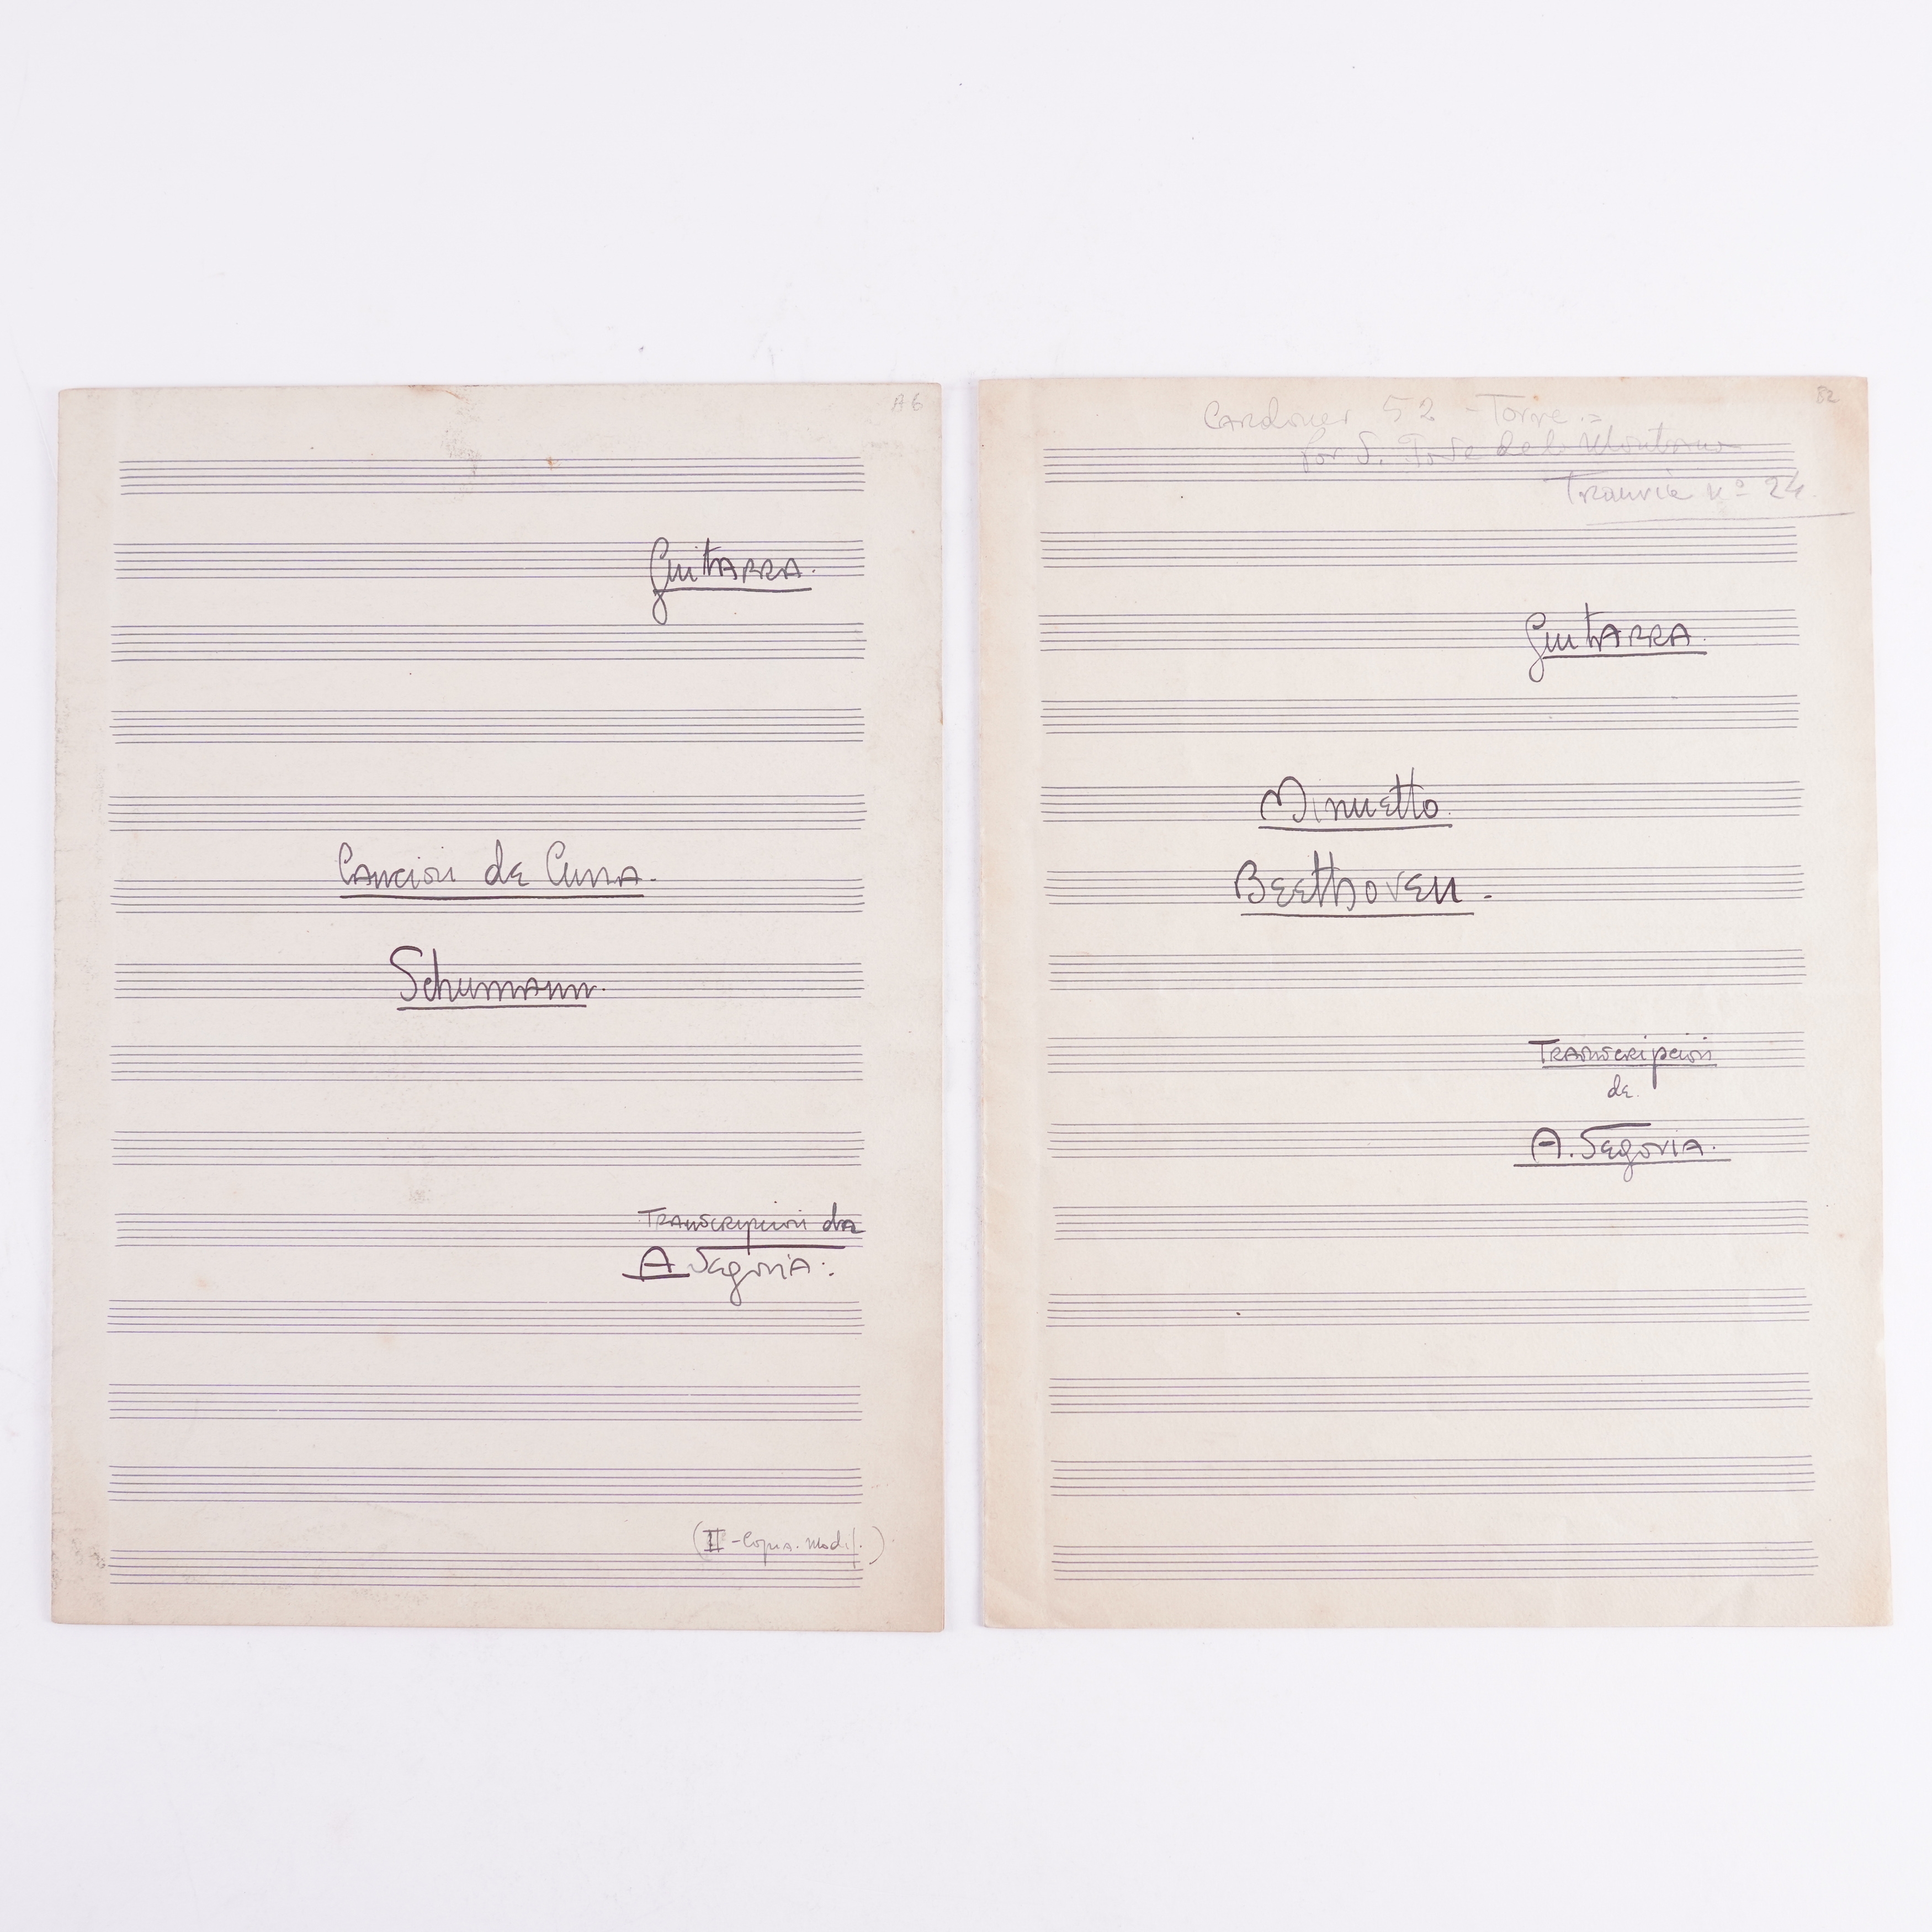 A6
Guitarra.
Canción de Cuna.
Schumann.
Transcripción de
A. Segovia.
(II - Copia. modif.)
82
Cardoner 52 - Torre =
por S. José de la Montaña
Tranvía nº 24
Guitarra.
Minuetto.
Beethoven.
Transcripción
de
A. Segovia.